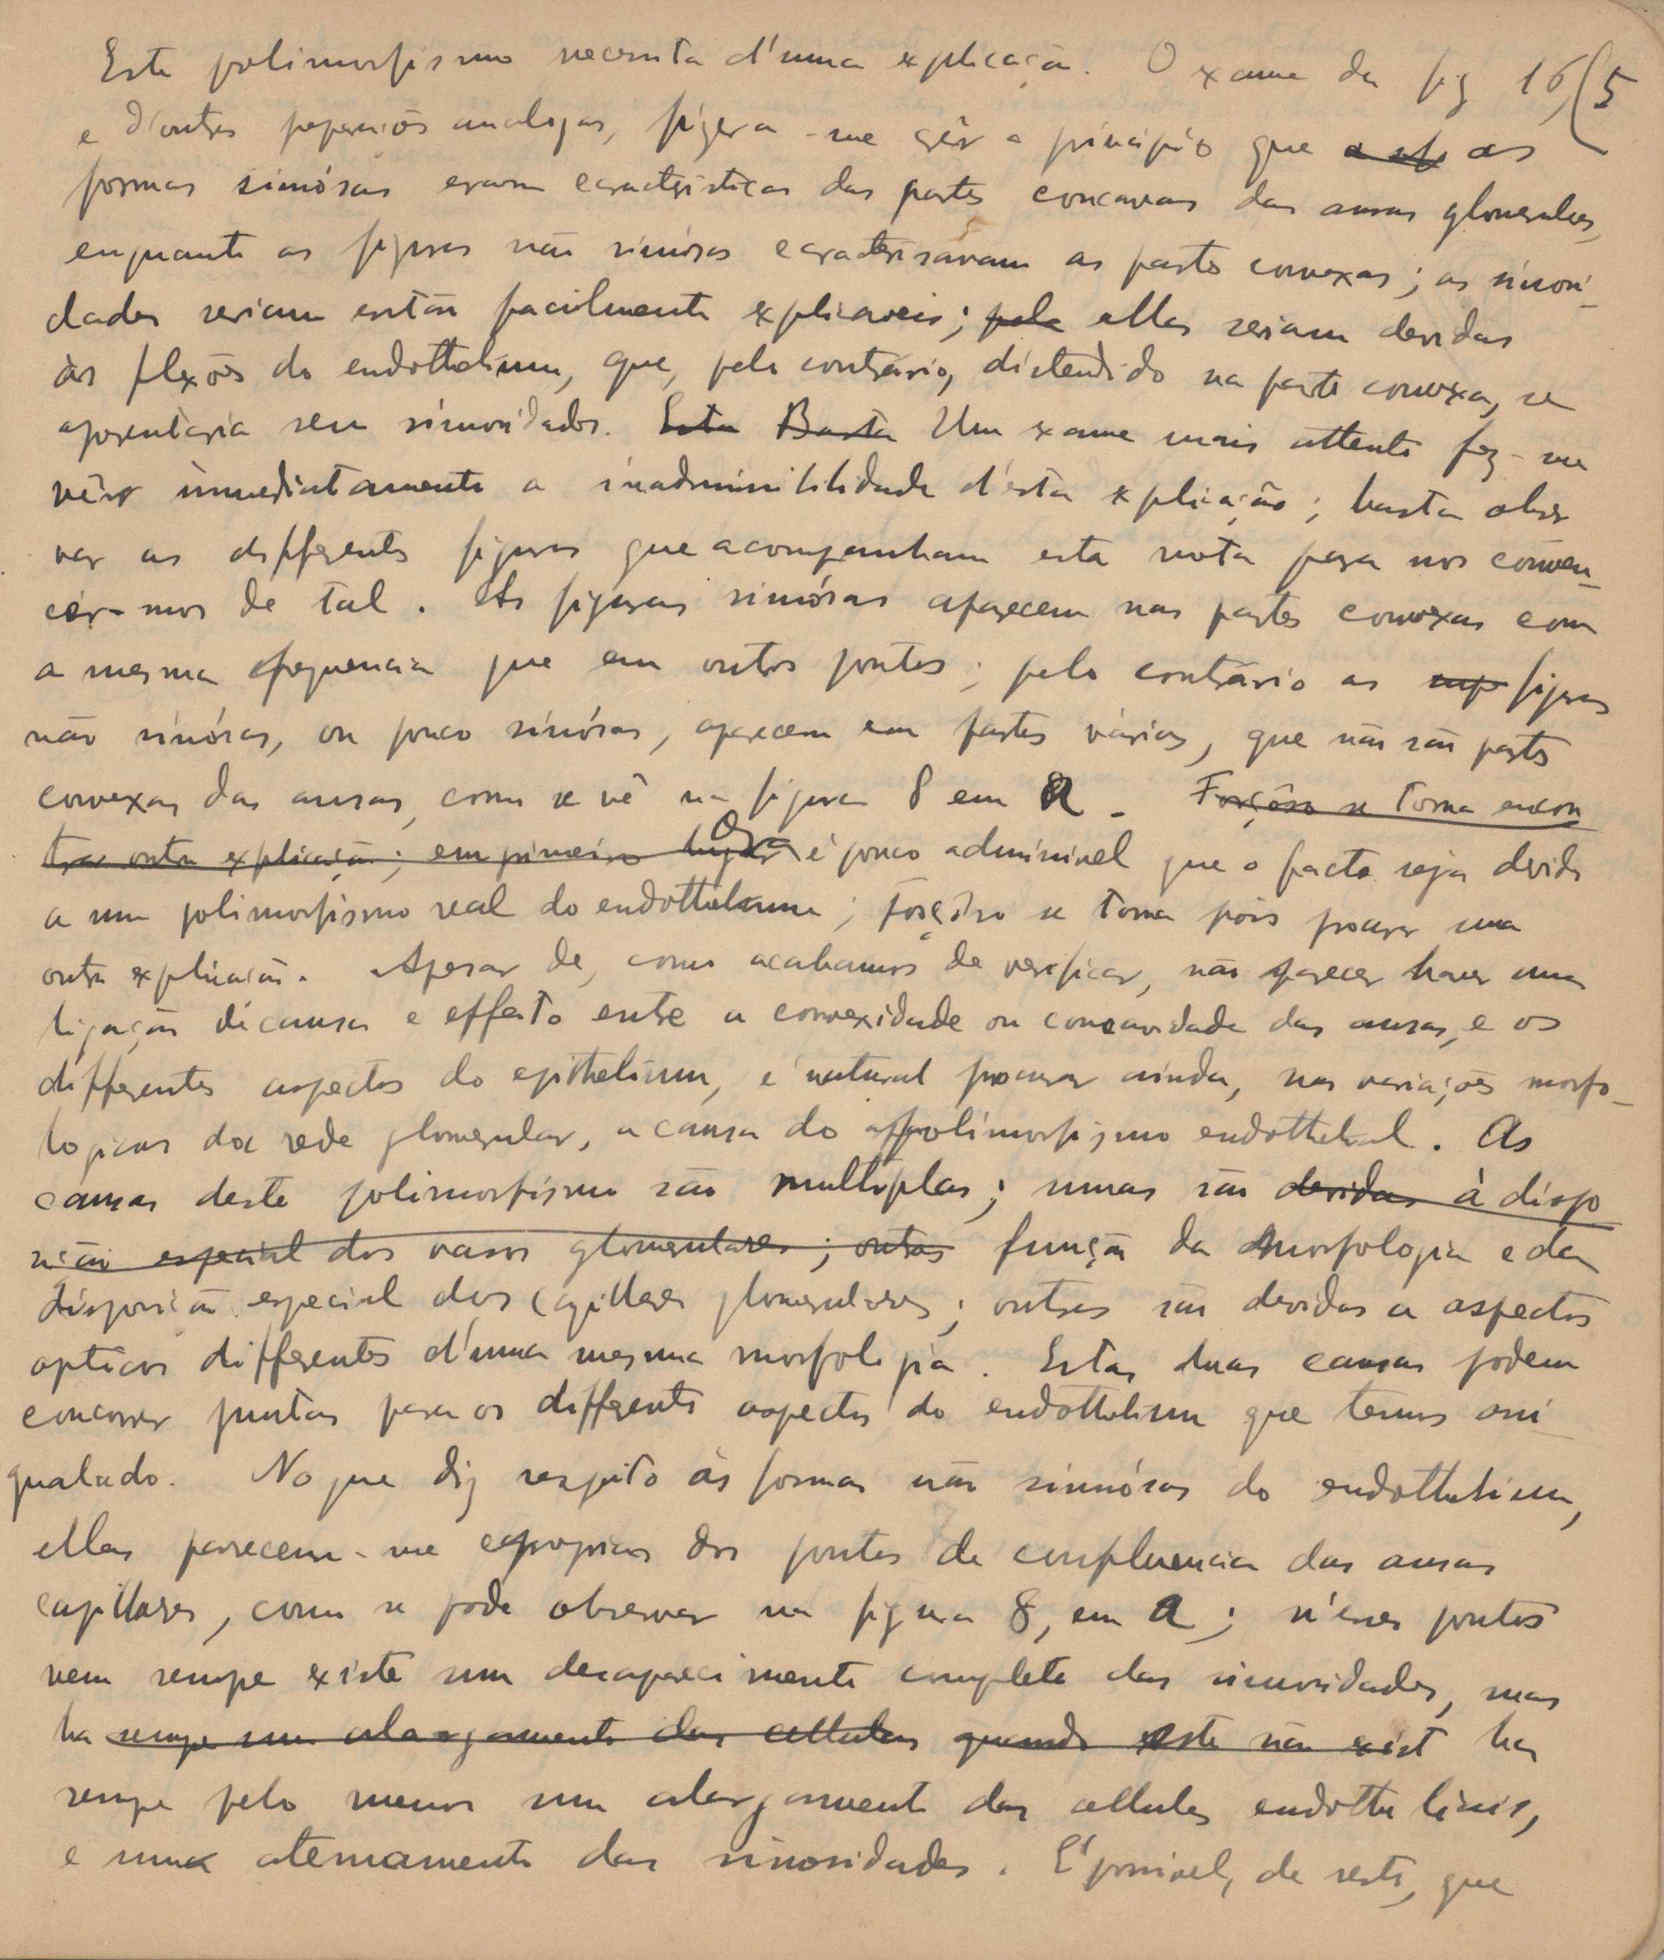 Este polimorfismo necessita d'uma explicação. O exame da fig 16, (5
e d'outras preparações analogas, fizera-me crêr a principio que a sf as
formas sinuósas eram caracteristicas das partes concavas das ansas glomerulares,
enquanto as figuras não sinuósas caracterisávam as partes convexas; as sinuosi-
dades seriam então facilmente explicaveis; pela ellas seriam devidas
às flexões do endothelium, que, pelo contrário, distendido na parte convexa, se
aprentaria sem sinuosidades. Esta Basta Um exame mais attento fez-me
vêr immediatamente a inadmissibilidade d'esta explicação; basta obser
var as differentes figuras que acompanham esta nota para nos conven-
cêr-mos de tal. As figuras sinuósas aparecem nas partes convexas com
a mesma frequencia que em outros pontos; pelo contrário as sup figuras
não sinuósas, ou pouco sinuósas, aparecem em partes várias, que não são partes
convexas das ansas, como se vê na figura 8 em a. Forçôso se torna encon
trar outra explicação; em primeiro lugar Ora é pouco admissivel que o facto seja devido
a um polimorfismo real do endothelium; forçôso se torna pois procurar uma
outra explicação. Apesar de, como acabamos de verificar, não parecer haver uma
ligação de causa e effeito entre a convexidade ou concavidade das ansas, e os
differentes aspectos do epithelium, é natural procurar ainda, nas variações morfo-
logicas da rede glomerular, a causa do polimorfismo endothelial. As
causas deste polimorfismo são multiplas; umas são devidas à dispo
sição especial dos vasos glomerulares; outras função da morfologia e da
disposição especial dos capillares glomerulares; outras são devidas a aspectos
opticos differentes d'uma mesma morfologia. Estas duas causas podem
concorrer juntas para os differentes aspectos do endothelium que temos assi-
gnalado. No que diz respeito às formas não sinuósas do endothelium,
ellas parecem-me proprias dos pontos de confluencia das ansas
capillares, como se pode observar na figura 8, em a; n'esses pontos
nem sempre existe um desaparecimento completo das sinuosidades, mas
ha sempre um alargamento das cellulas quando este não exist ha
sempre pelo menos um alargamento das cellulas endotheliais,
e uma atenuamento das sinosidades. É possivel, de resto, que